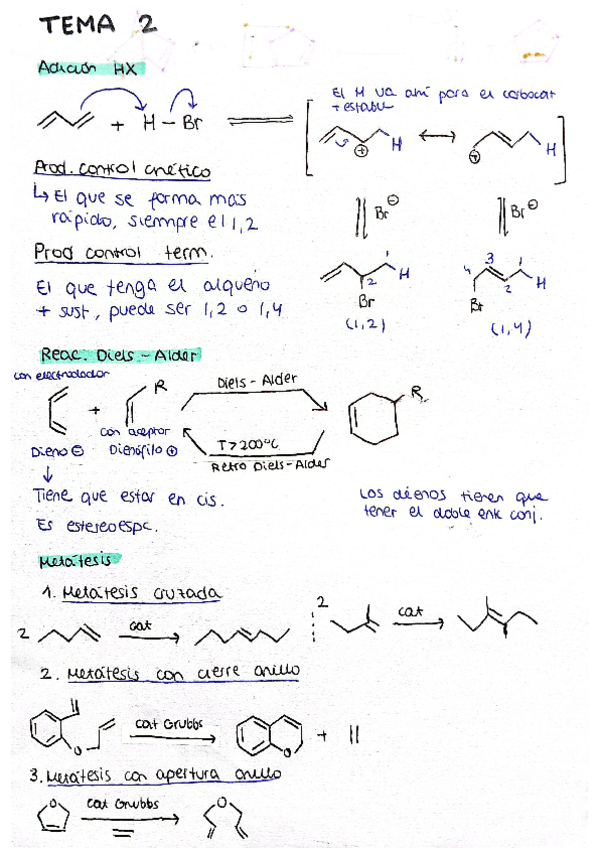 TEMA 2
Adición HX
El H va ahí para el carbocat
+ estable
+ H - Br
H
H
Prod. control cinético
↳ El que se forma mas
rápido, siempre el 1,2
Br⊖
Br⊖
Prod control term.
El que tenga el alqueno
+ sust, puede ser 1,2 o 1,4
1
2
H
Br
(1,2)
4
3
2
1
H
Br
(1,4)
Reac. Diels - Alder
con electrodador
R
+
Diels - Alder
R
con aceptor
T>200ºC
Dieno ⊖
Dienófilo ⊕
Retro Diels-Alder
Tiene que estar en cis.
Es estereoespc.
Los dienos tienen que
tener el doble enlc conj.
Metátesis
1. Metátesis cruzada
2
cat
2
cat
2. Metátesis con cierre anillo
O
cat Grubbs
O
+
3. Metátesis con apertura anillo
O
cat Grubbs
O